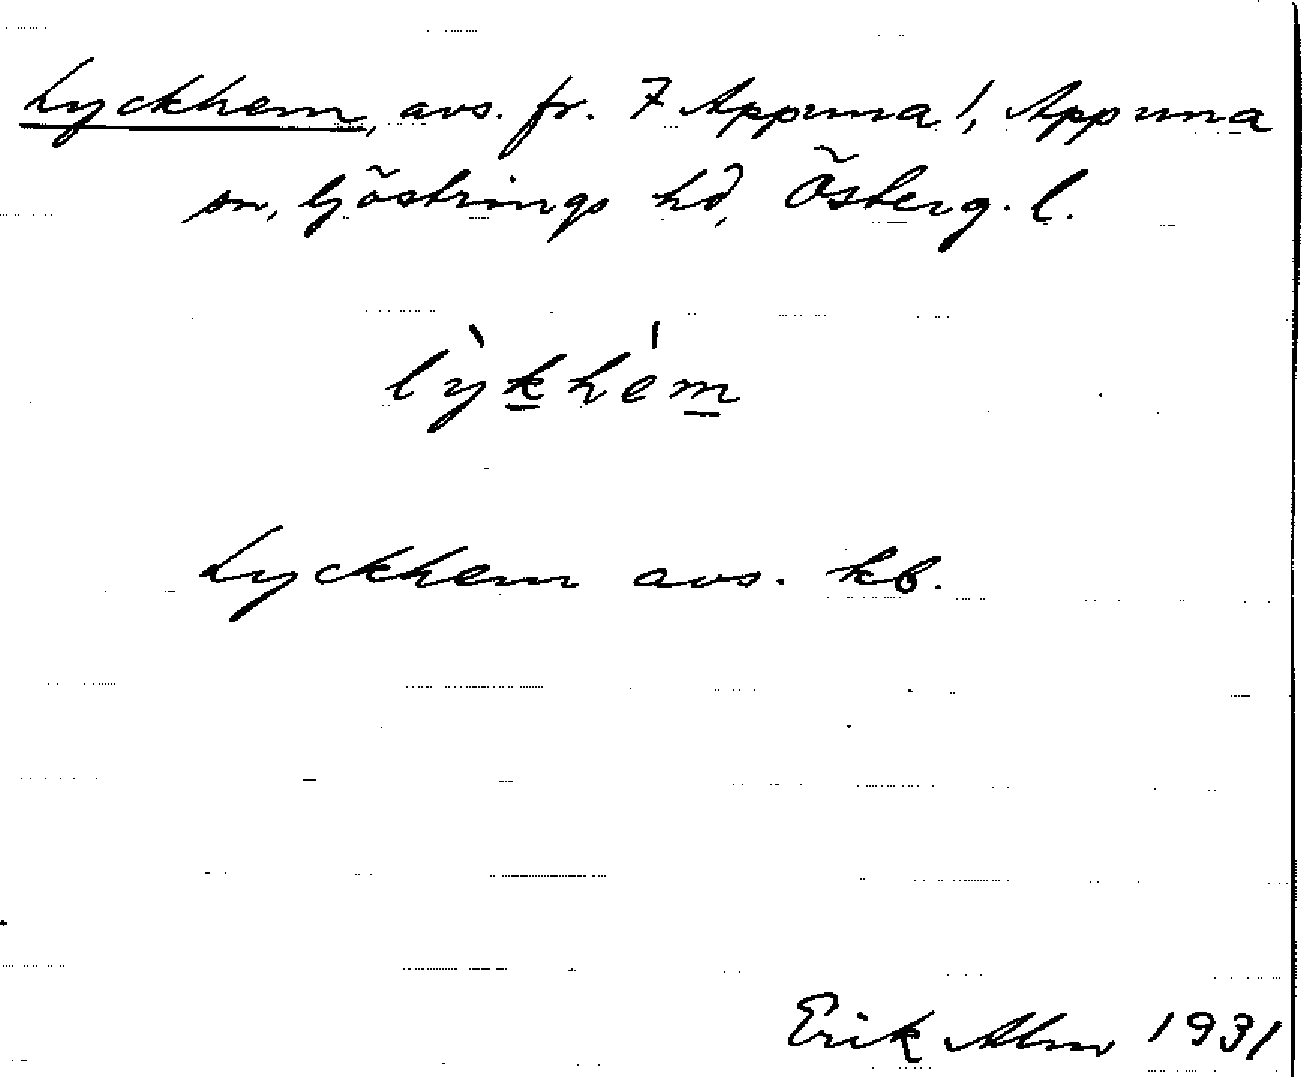 Lyckhem, avs. fr. 7 Appuna!, Appuna
sn, Göstrings hd, Österg. l.
lỳkhém
Lyckhem avs. kb.
Erik Alm 1931